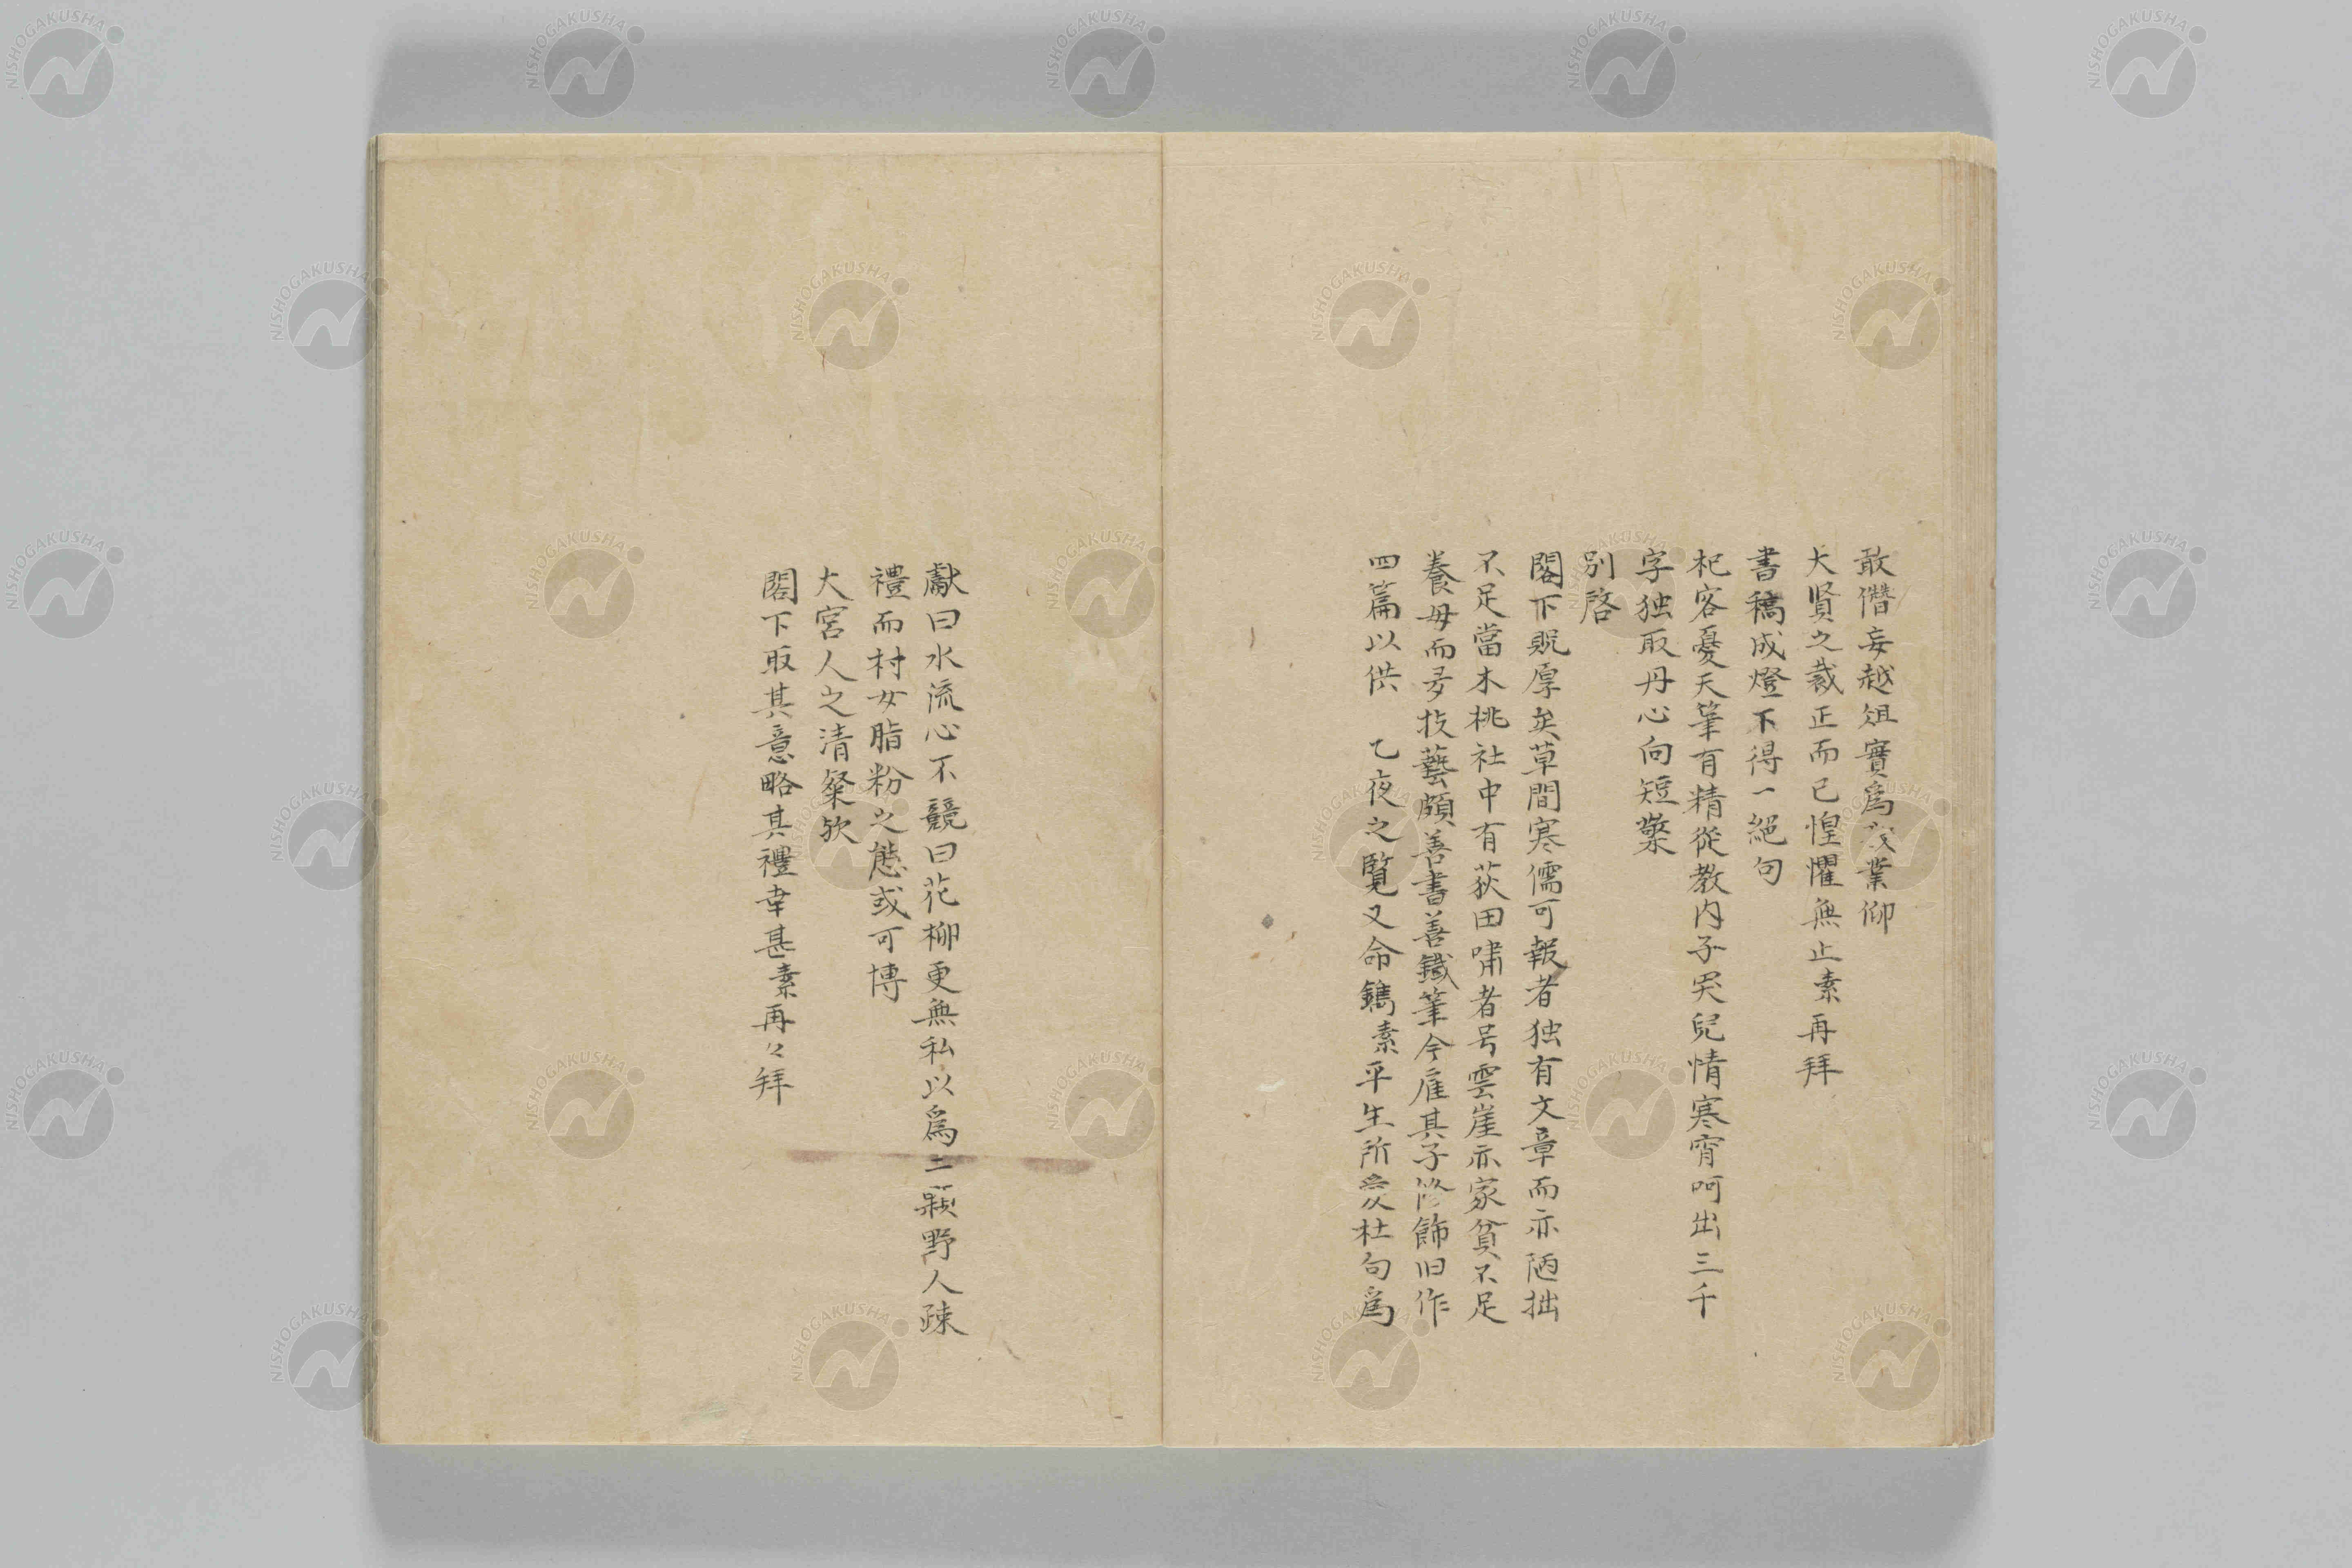 敢僭妄越俎實爲㪚業仰
大賢之裁正而已惶懼無止素再拜
書稿成燈下得一絕句
杞客憂天筆有精從教内子哭兒情寒宵呵出三千
字独取丹心向短檠
別啓
閣下貺厚矣草間寒儒可報者独有文章而亦陋拙
不足當木桃社中有荻田嘯者号雲崖亦家貧不足
養母而多技藝頗善書善鐵筆今雇其子修飾旧作
四篇以供 乙夜之覧又命鐫素平生所愛杜句爲
獻曰水流心不競曰花柳更無私以爲二顆野人疎
禮而村女脂粉之態或可博
大宮人之清粲欤
閣下取其意略其禮幸甚素再々拜
NISHOGAKUSHA